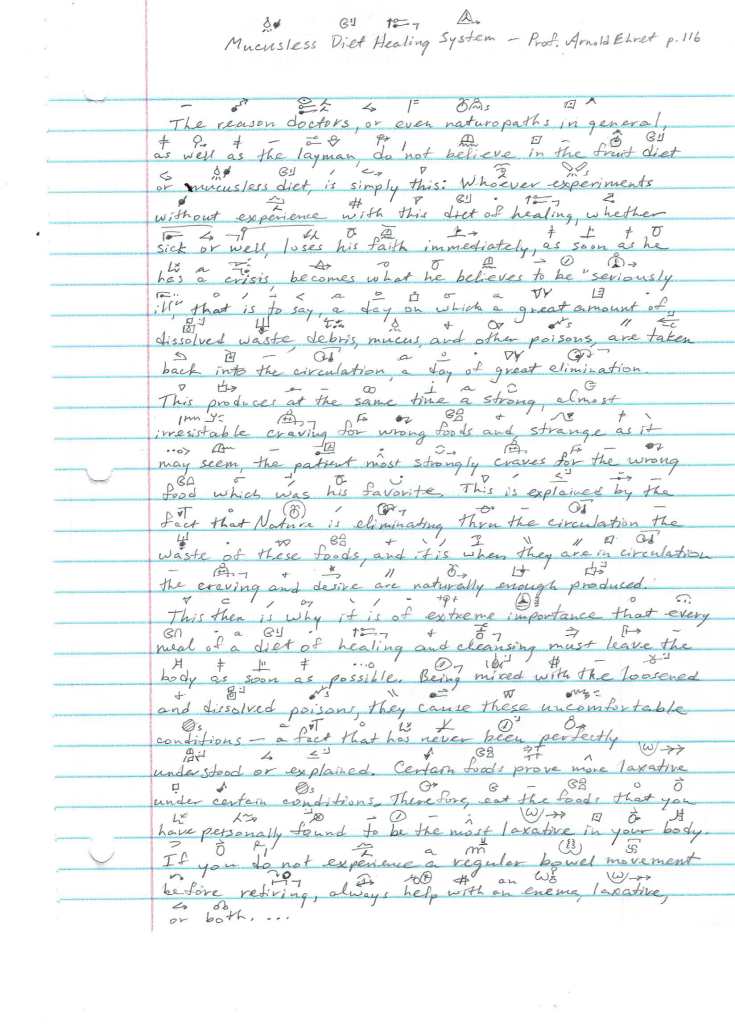 Mucusless Diet Healing System - Prof. Arnold Ehret p. 116
The reason doctors, or even naturopaths in general,
as well as the layman, do not believe in the fruit diet
or mucusless diet, is simply this: Whoever experiments
without experience with this diet of healing, whether
sick or well, loses his faith immediately, as soon as he
has a crisis, becomes what he believes to be "seriously
ill", that is to say, a day on which a great amount of
dissolved waste, debris, mucus, and other poisons, are taken
back into the circulation, a day of great elimination.
This produces at the same time a strong, almost
irresistable craving for wrong foods and strange as it
may seem, the patient most strongly craves for the wrong
food which was his favorite. This is explained by the
fact that Nature is eliminating thru the circulation the
waste of these foods, and it is when they are in circulation
the craving and desire are naturally enough produced.
This then is why it is of extreme importance that every
meal of a diet of healing and cleansing must leave the
body as soon as possible. Being mixed with the loosened
and dissolved poisons, they cause these uncomfortable
conditions — a fact that has never been perfectly
understood or explained. Certain foods prove more laxative
under certain conditions. Therefore, eat the foods that you
have personally found to be the most laxative in your body.
If you do not experience a regular bowel movement
before retiring, always help with an enema, laxative,
or both. ...